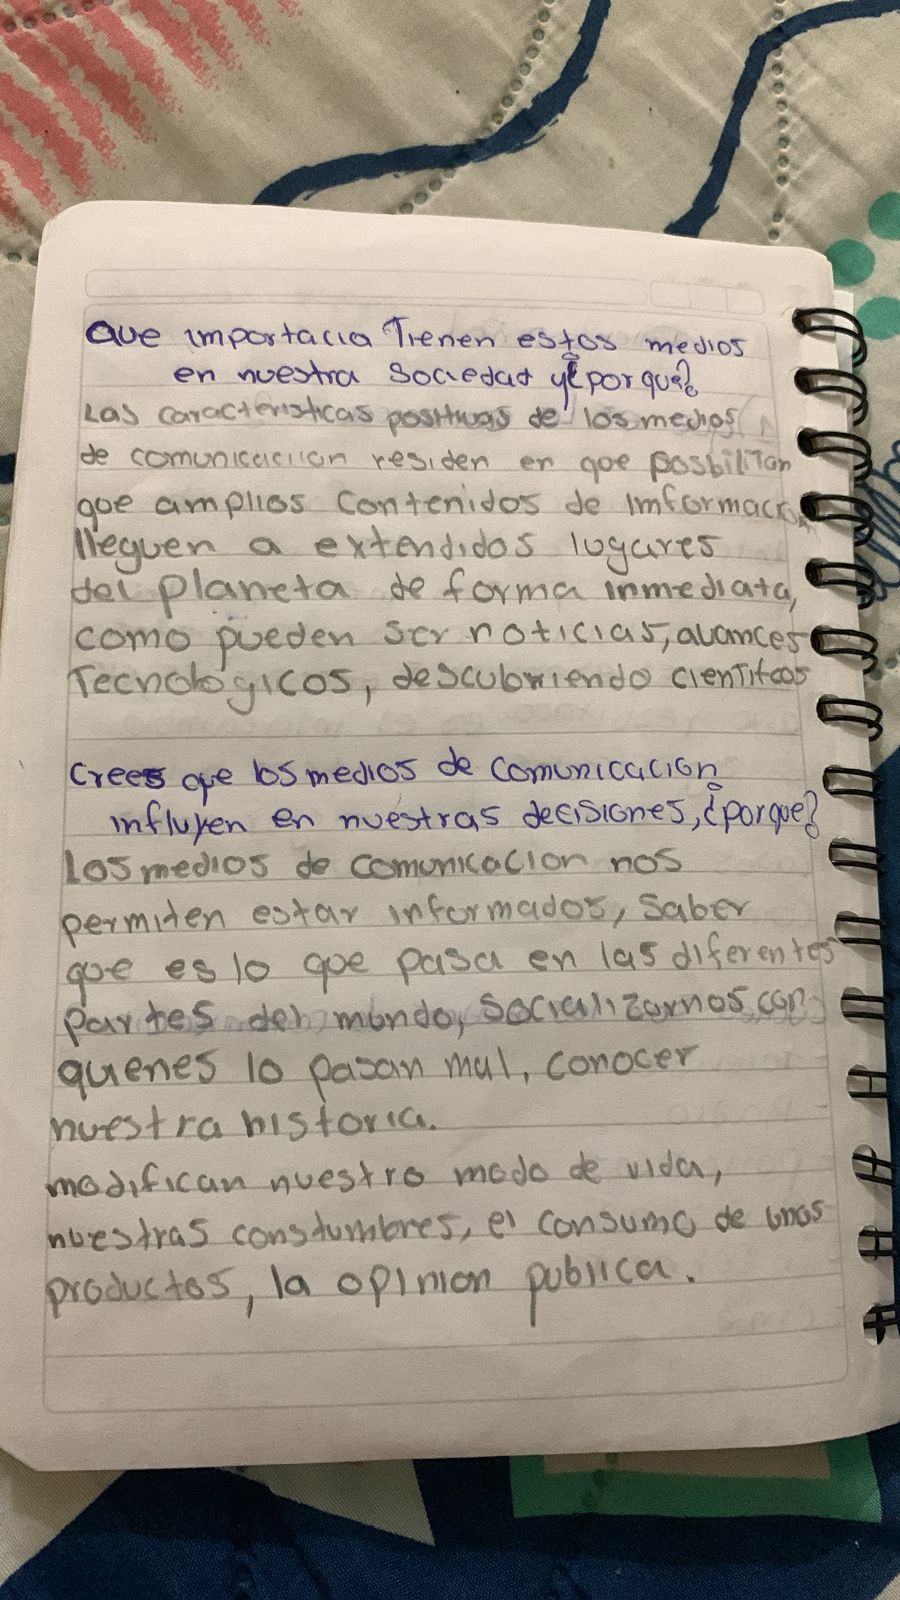 Que importacia Tienen estos medios
en nuestra Sociedad y ¿por que?
Las caracteristicas positivas de los medios
de comunicaciion residen en que posbilitan
que amplios contenidos de imformacion
lleguen a extendidos lugares
del planeta de forma inmediata,
como pueden ser noticias, avances
Tecnologicos, descubriendo cientificos
Crees que los medios de comunicacion
influyen en nuestras decisiones, ¿porque?
Los medios de comunicacion nos
permiten estar informados, saber
que es lo que pasa en las diferentes
partes del mundo, socializarnos con
quienes lo pasan mal, conocer
nuestra historia.
modifican nuestro modo de vida,
nuestras constumbres, el consumo de unos
productos, la opinion publica.